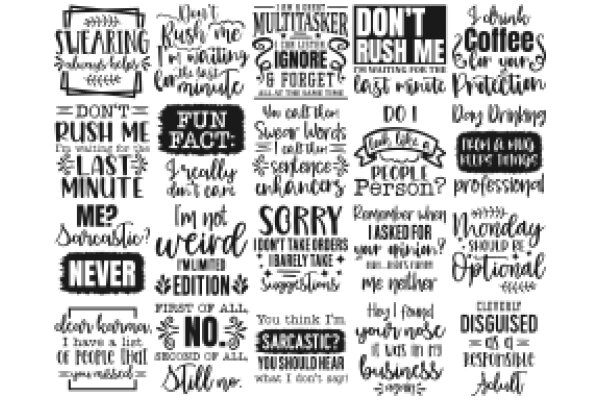 SWEARING
always helps
Don't
Rush me
I'm waiting
for the last
minute
I AM A GREAT
MULTITASKER
I CAN LISTEN
IGNORE
& FORGET
ALL AT THE SAME TIME
DON'T
RUSH ME
I'M WAITING FOR THE
last minute
I drink
Coffee
for your
Protection
DON'T
RUSH ME
I'm waiting for the
LAST
MINUTE
FUN
FACT:
I really
don't care
You call them
Swear Words
I call them
sentence
enhancers
DO I
look like a
PEOPLE
Person?
Day Drinking
FROM A MUG
KEEPS THINGS
professional
ME?
Sarcastic?
NEVER
I'm not
weird
I'M LIMITED
EDITION
SORRY
I DON'T TAKE ORDERS
I BARELY TAKE
suggestions
Remember when
I ASKED FOR
your opinion?
me neither
Monday
SHOULD BE
Optional
dear karma,
I have a list
OF PEOPLE THAT
you missed
FIRST OF ALL,
NO.
SECOND OF ALL,
Still no.
You think I'm
SARCASTIC?
YOU SHOULD HEAR
what I don't say!
Hey I found
your nose
it was in my
business
again
CLEVERLY
DISGUISED
as a
RESPONSIBLE
Adult